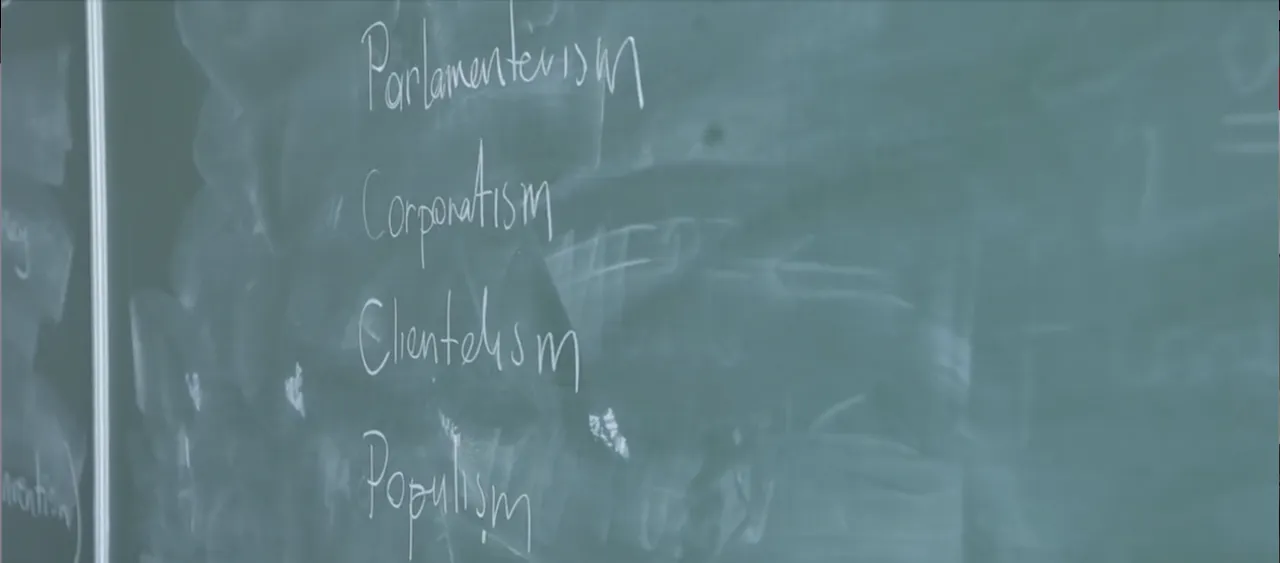 Parlamenterism
Corporatism
Clientelism
Populism